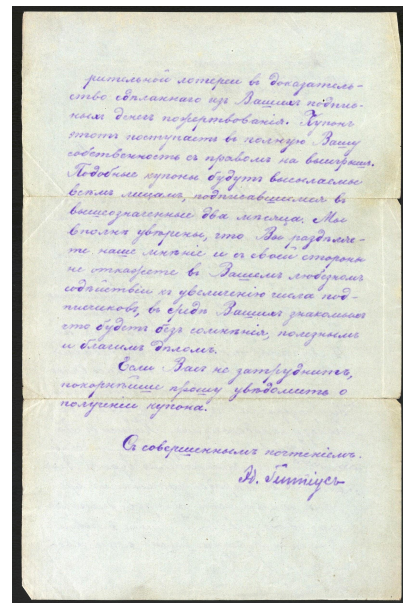 рительной лотереи въ доказатель-
ство сдѣланнаго изъ Вашихъ подпис-
ныхъ денегъ пожертвованія. Купонъ
этотъ поступаетъ въ полную Вашу
собственность съ правомъ на выигрыш.
Подобные купоны будутъ высылаемы
всѣмъ лицамъ, подписавшимся въ
вышеозначенные два мѣсяца. Мы
вполнѣ увѣрены, что Вы раздѣляе-
те наше мнѣніе и съ своей стороны
не откажете въ Вашемъ любезномъ
содѣйствіи къ увеличенію числа под-
писчиковъ, въ средѣ Вашихъ знакомыхъ
это будетъ безъ сомнѣнія, полезнымъ
и благимъ дѣломъ.
Если Васъ не затруднитъ,
покорнѣйше прошу увѣдомить о
полученіи купона.
Съ совершеннымъ почтеніемъ.